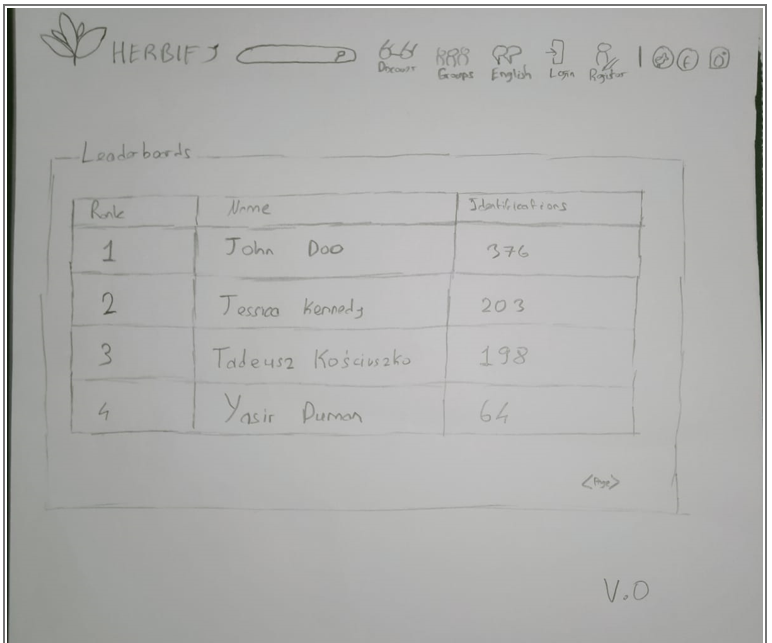 HERBIFY
Discover Groups English Login Register |
Leaderboards
Rank Name Identifications
1 John Doo 376
2 Jessica Kennedy 203
3 Tadeusz Kościuszko 198
4 Yasir Duman 64
<Page>
V.0